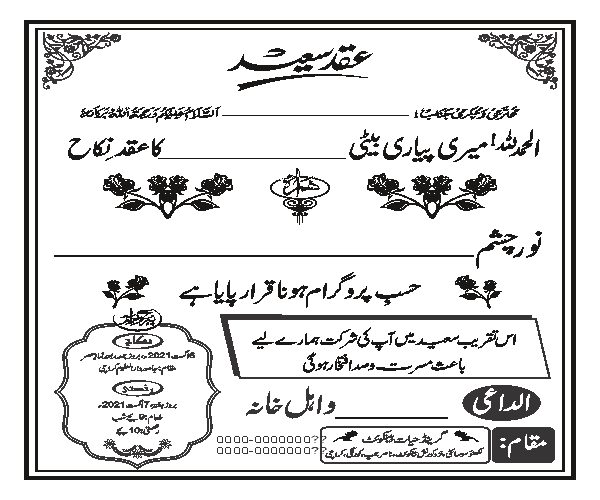 عقد سعید
محترمی و مکرمی جناب! السلام علیکم ورحمۃ اللہ وبرکاتہ
الحمدللہ! میری پیاری بیٹی کا عقدِ نکاح
ہمراہ
نورِ چشم
حسبِ پروگرام ہونا قرار پایا ہے
اس تقریب سعید میں آپ کی شرکت ہمارے لیے
باعث مسرت و صد افتخار ہوگی
پروگرام
نکاح
6 اگست 2021ء بروز جمعہ بعد نماز عصر
رخصتی
بروز ہفتہ 7 اگست 2021ء
طعام: بجے شب
رخصتی: 10 بجے
الداعی
و اہل خانہ
مقام:
گرینڈ حیات بینکوئٹ
کراچی
0000-0000000??
0000-0000000??